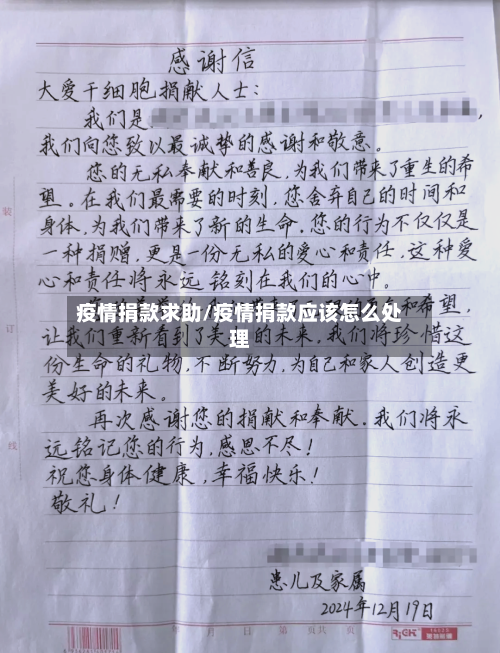 感谢信
大爱干细胞捐献人士：
我们是
我们向您致以最诚挚的感谢和敬意。
您的无私奉献和善良，为我们带来了重生的希
望。在我们最需要的时刻，您舍弃自己的时间和
身体，为我们带来了新的生命，您的行为不仅仅是
一种捐赠，更是一份无私的爱心和责任，这种爱
心和责任将永远铭刻在我们的心中。
和希望，
疫情捐款求助/疫情捐款应该怎么处
理
让我们重新看到了美的未来，我们将珍惜这
份生命的礼物，不断努力，为自己和家人创造更
美好的未来。
再次感谢您的捐献和奉献，我们将永
远铭记您的行为，感恩不尽！
祝您身体健康，幸福快乐！
敬礼！
患儿及家属
2024年12月19日
装
订
线
年 月 日 第 页共 页